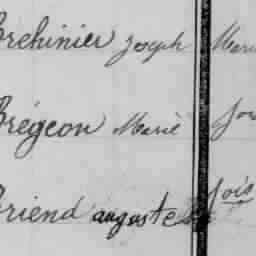 Brehinier Joseph Marie
Brégeon Marie
Briend auguste